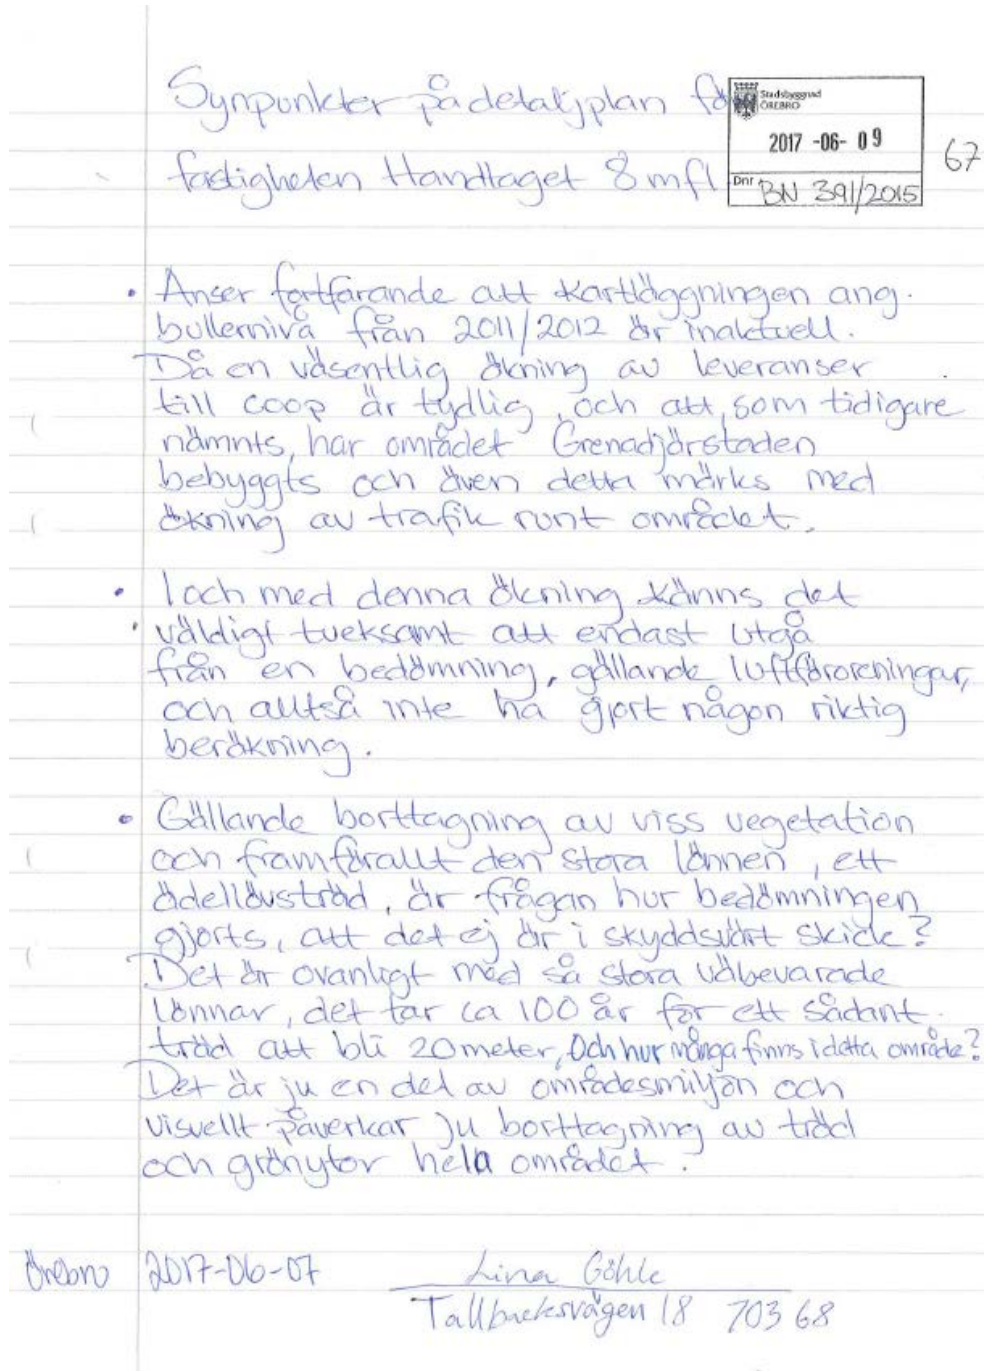 Synpunkter på detaljplan för
Stadsbyggnad
ÖREBRO
2017 -06- 09
67
fastigheten Handtaget 8 mfl
Dnr BN 391/2015
• Anser fortfarande att kartläggningen ang.
bullernivå från 2011/2012 är inaktuell.
Då en väsentlig ökning av leveranser
till coop är tydlig, och att, som tidigare
nämnts, har området Grenadjärstaden
bebyggts och även detta märks med
ökning av trafik runt området.
• I och med denna ökning känns det
väldigt tveksamt att endast utgå
från en bedömning, gällande luftföroreningar,
och alltså inte ha gjort någon riktig
beräkning.
• Gällande borttagning av viss vegetation
och framförallt den stora lönnen, ett
ädellövsträd, är frågan hur bedömningen
gjorts, att det ej är i skyddsvärt skick?
Det är ovanligt med så stora välbevarade
lönnar, det tar ca 100 år för ett sådant
träd att bli 20 meter, Och hur många finns i detta område?
Det är ju en del av områdesmiljön och
visuellt påverkar ju borttagning av träd
och grönytor hela området.
Örebro 2017-06-07 Lina Göhle
Tallbacksvägen 18 703 68